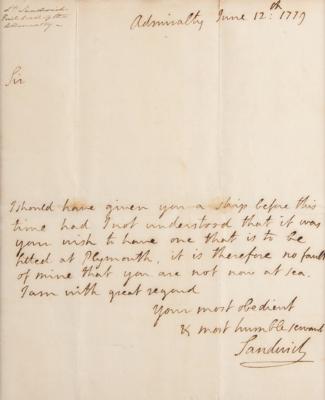 Ld. Sandwich
First Lord of the
Admiralty
Admiralty June 12th 1779
Sir
I should have given you a ship before this
time had I not understood that it was
your wish to have one that is to be
fitted at Plymouth, it is therefore no fault
of mine that you are not now at sea.
I am with great regard
Your most obedient
& most humble servant
Sandwich